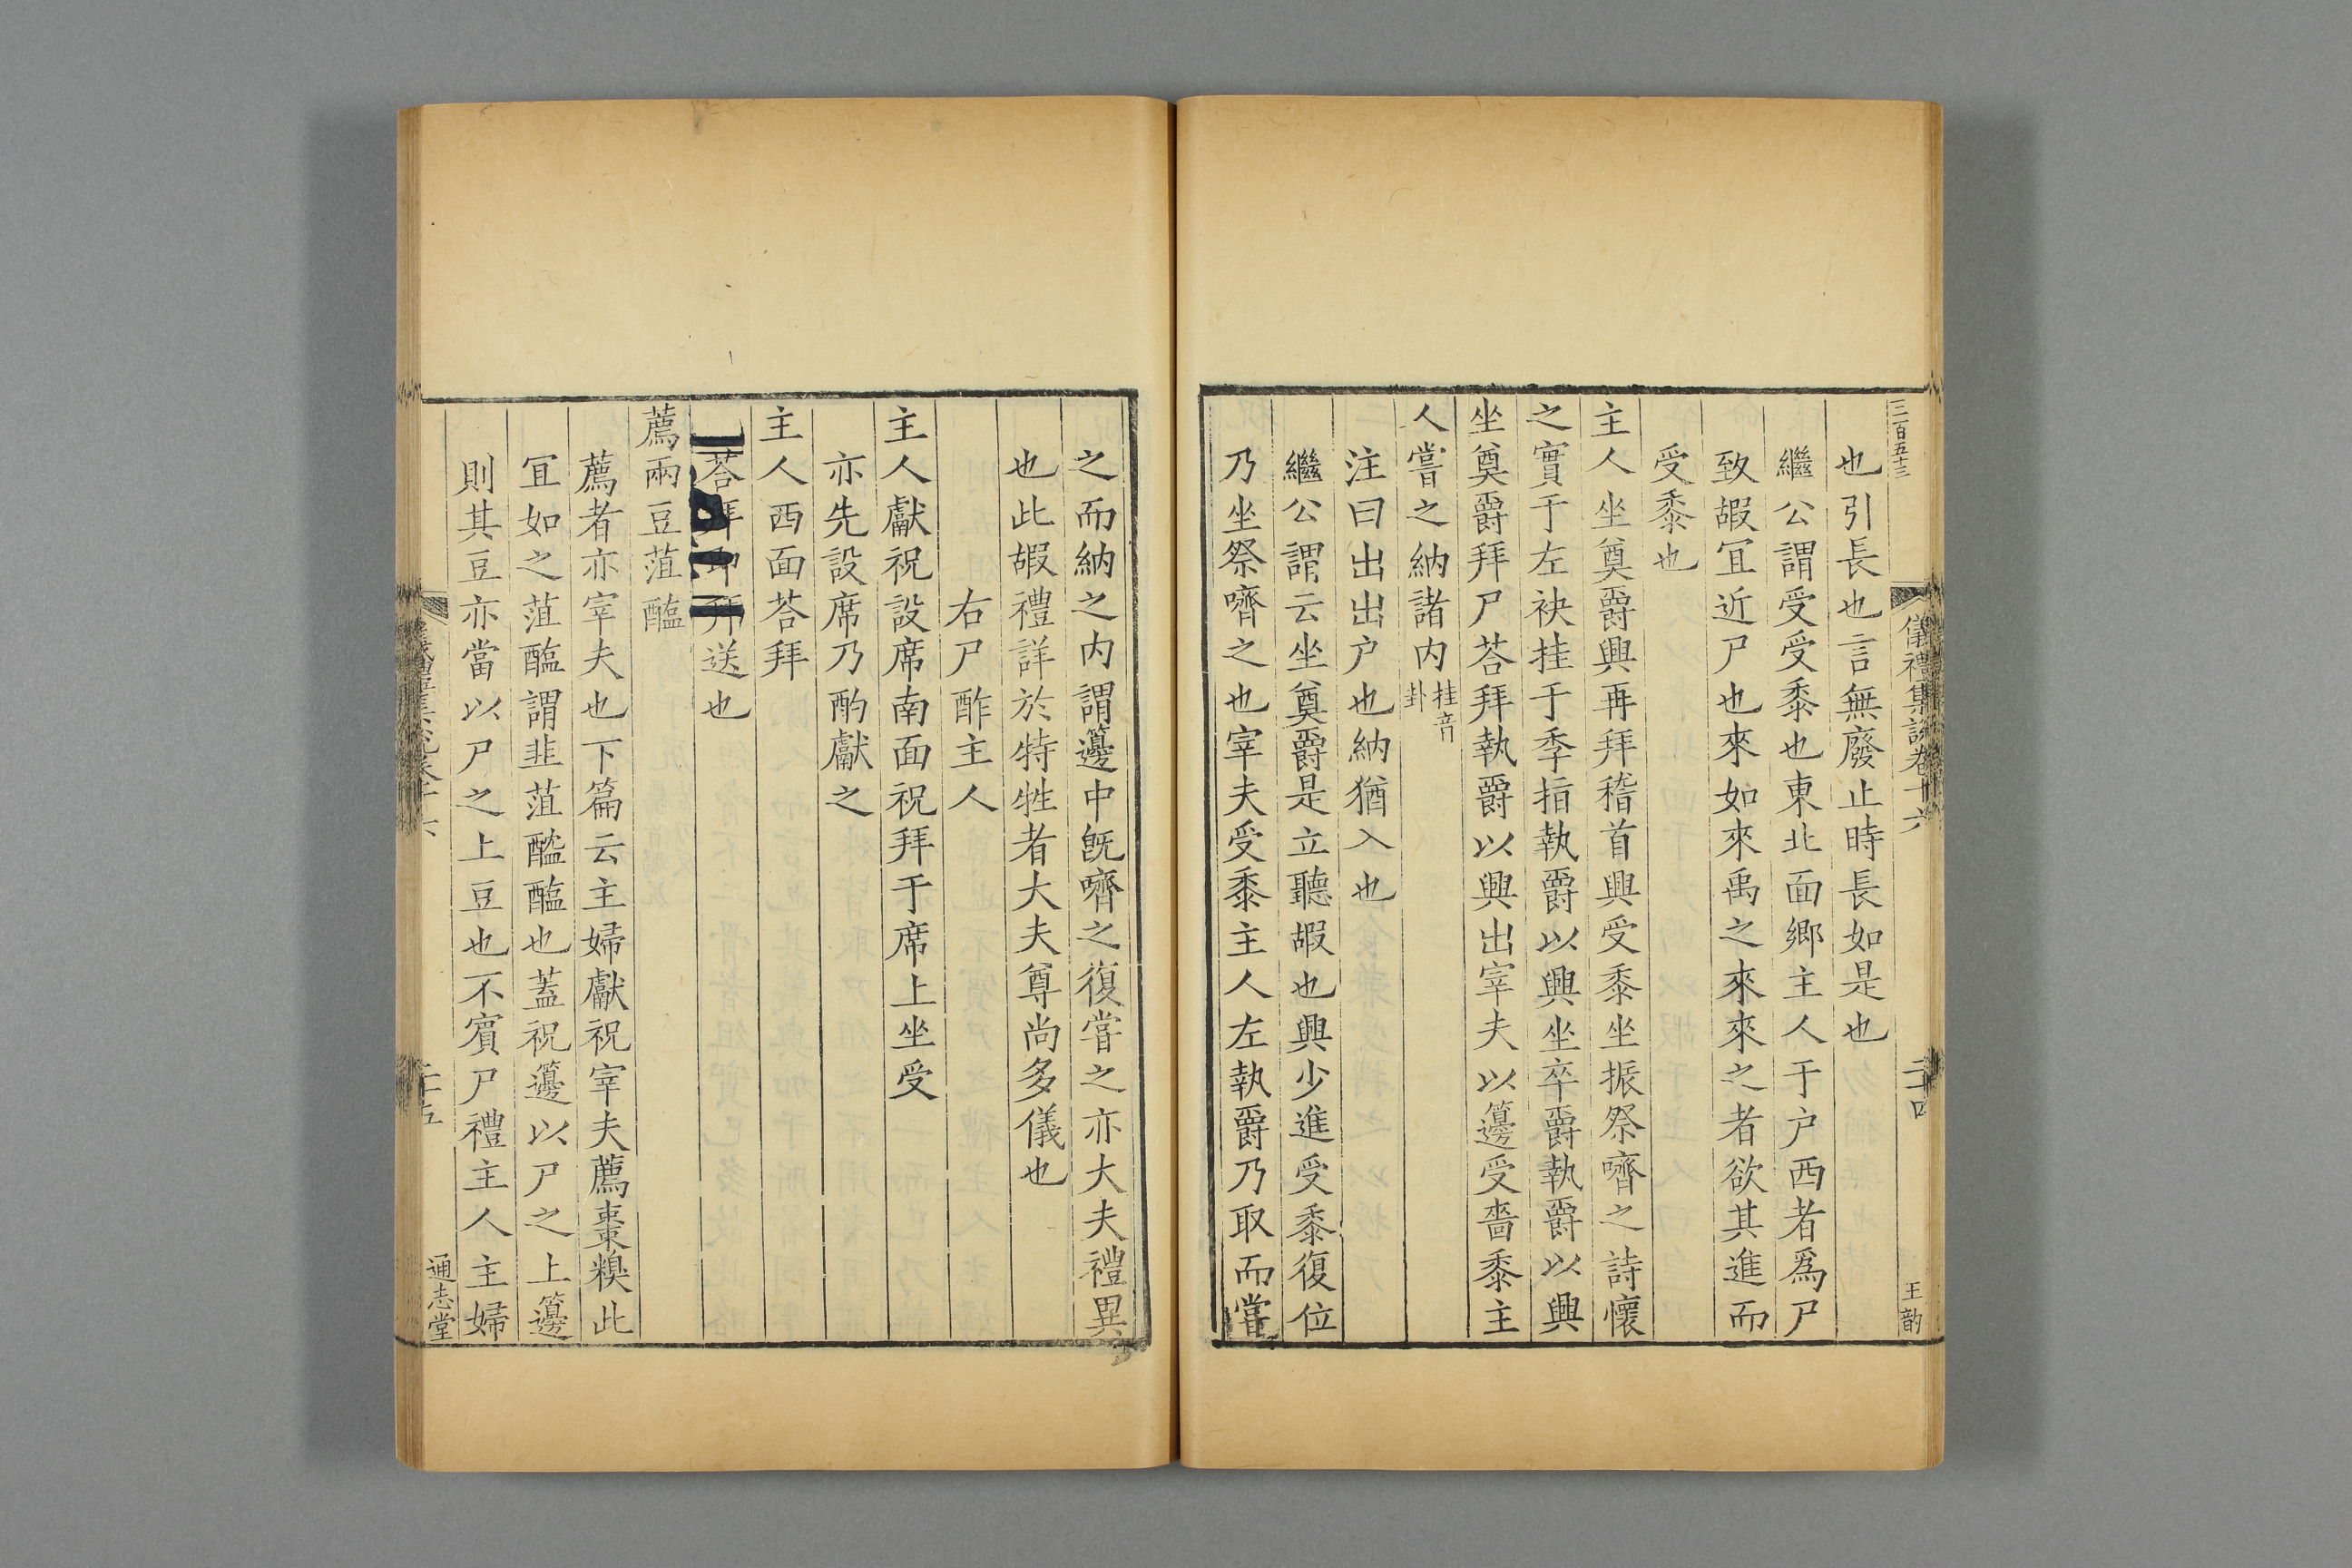 三百五十三
儀禮集說卷十六
二十四
王韵
也引長也言無廢止時長如是也
繼公謂受受黍也東北面鄉主人于户西者爲尸
致嘏宜近尸也來如來禹之來來之者欲其進而
受黍也
主人坐奠爵興再拜稽首興受黍坐振祭嚌之詩懷
之實于左袂挂于季指執爵以興坐卒爵執爵以興
坐奠爵拜尸荅拜執爵以興出宰夫以籩受嗇黍主
人嘗之納諸内挂音卦
注曰出出户也納猶入也
繼公謂云坐奠爵是立聽嘏也興少進受黍復位
乃坐祭嚌之也宰夫受黍主人左執爵乃取而嘗
之而納之内謂籩中旣嚌之復嘗之亦大夫禮異
也此嘏禮詳於特牲者大夫尊尚多儀也
右尸酢主人
主人獻祝設席南面祝拜于席上坐受
亦先設席乃酌獻之
主人西面荅拜
荅拜即拜送也
薦兩豆菹醢
薦者亦宰夫也下篇云主婦獻祝宰夫薦棗糗此
宜如之菹醢謂韭菹醓醢也蓋祝籩以尸之上籩
則其豆亦當以尸之上豆也不賓尸禮主人主婦
二十五
通志堂